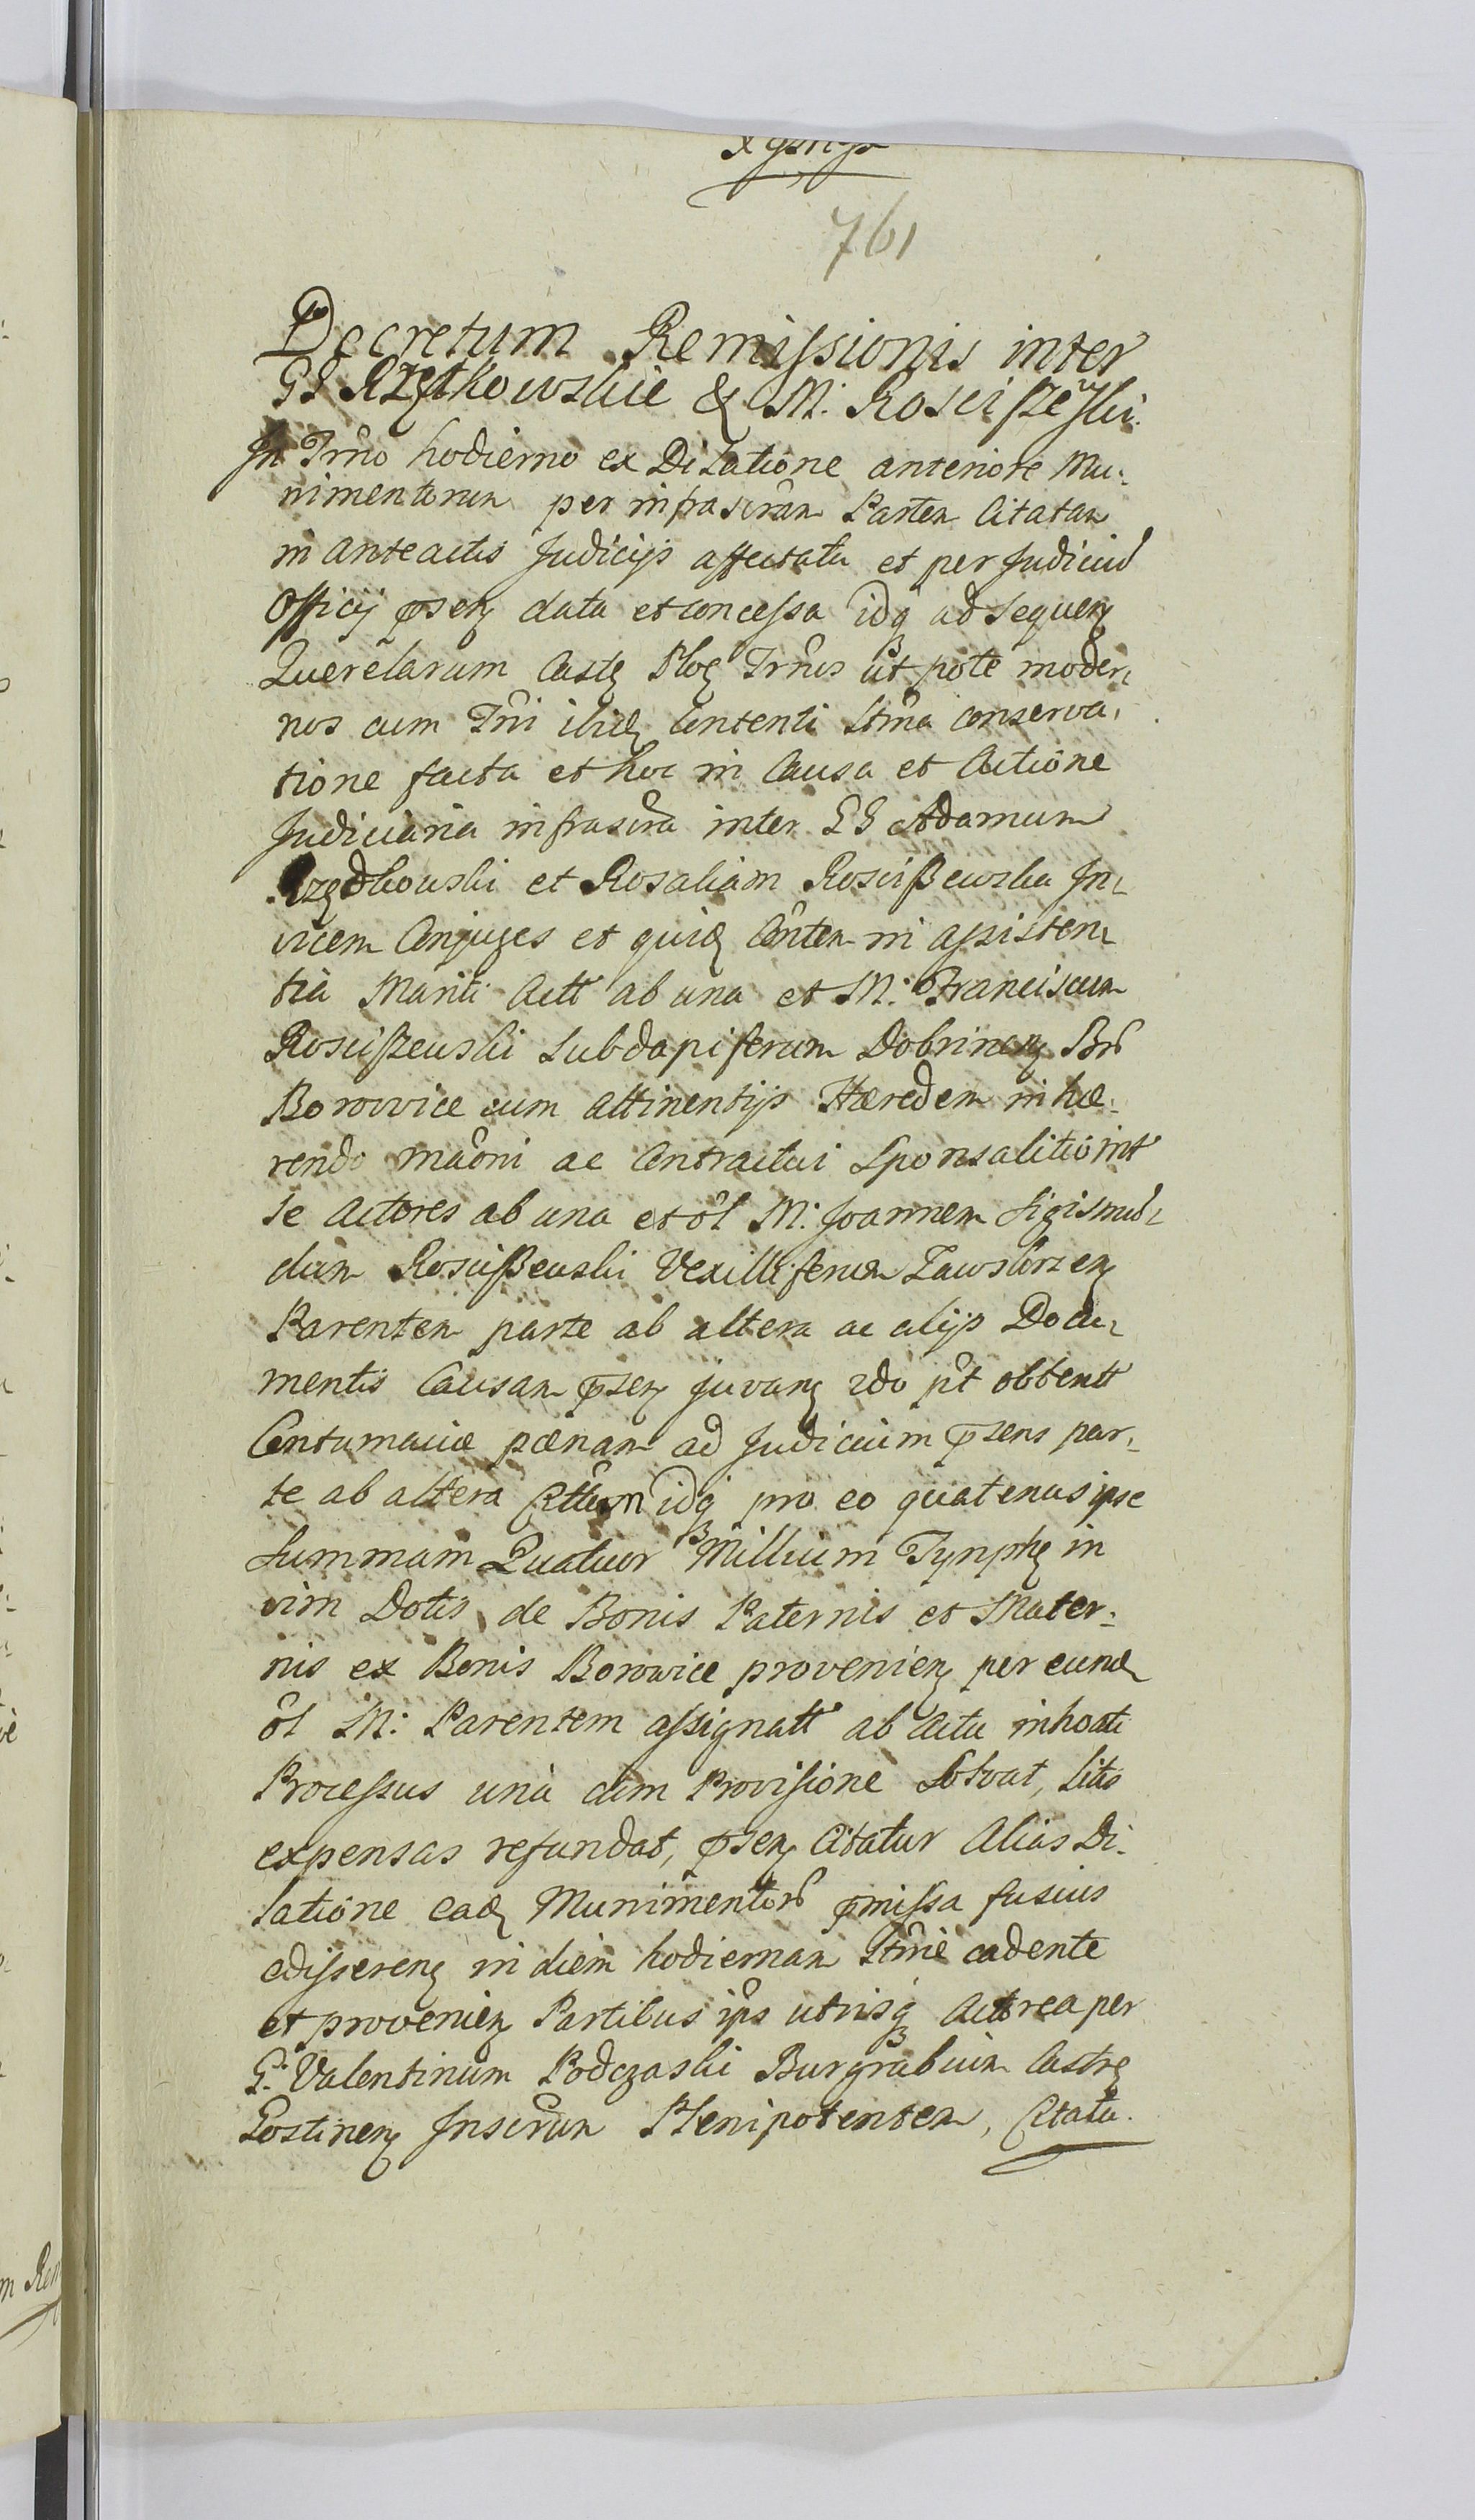 761
Decretum Remissionis inter
GG Rzętkowskie & M: Rosciszewski.
In Trno hodierno ex Dilatione anteriore Mu:
nimentorum per infrascrām Partem Citatam
in anteactis Judicijs affectata et per Judiciu
Officij pseñ data et concessa idq ad sequeñ
Querelarum Casteñ Ploceñ Trnos ut pote moder,
nos cum Trni ibideñ Contenti Strna conserva,
tione facta et hoc in Causa et Actione
Judiciaria infrascrā inter GG Adamum
Rzędkowski et Rosaliam Rosciszewska In,
vicem Conjuges et quideñ Contem in assisten,
tia Mariti Actt ab una et M: Franciscum
Rosciszewski Subdapiferum Dobrineñ Bru
Borowice cum attinentijs Hæredem inhæ:
rendo Maōni ac Contractui Sponsalitio int
se Actores ab una et ol M: Joannem Sigismu,
dum Rosciszewski Vexilliferum Zawskrzeñ
Parentem parte ab altera ac alijs Docu,
mentis Causam pseñ juvañ 2do pt obtent
Contumaciæ pœnam ad Judicium psens par,
te ab altera Cttum idq pro eo quatenus ipse
Summam Quatuor Millium Tympheñ in
vim Dotis de Bonis Paternis et Mater:
nis ex Bonis Borowice provenieñ per eunde
ol M: Parentem assignatt ab Actu inhoati
Processus unà cum Provisione Solvat, Litis
expensas refundat, pseñ Citatur Alias Di:
latione eadeñ Munimentoru pmissa fusius
edissereñ in diem hodiernam Strnie cadente
et provenieñ Partibus ips utrisq Actorea per
G: Valentinum Podczaski Burgrabium Castreñ
Gostineñ Inscrum Plenipotentem, Citata.